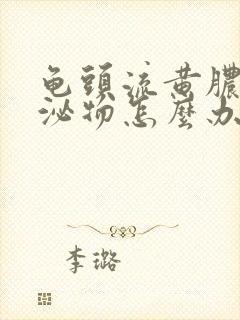 龟頭流黄膿
泌物怎麼办
李璐